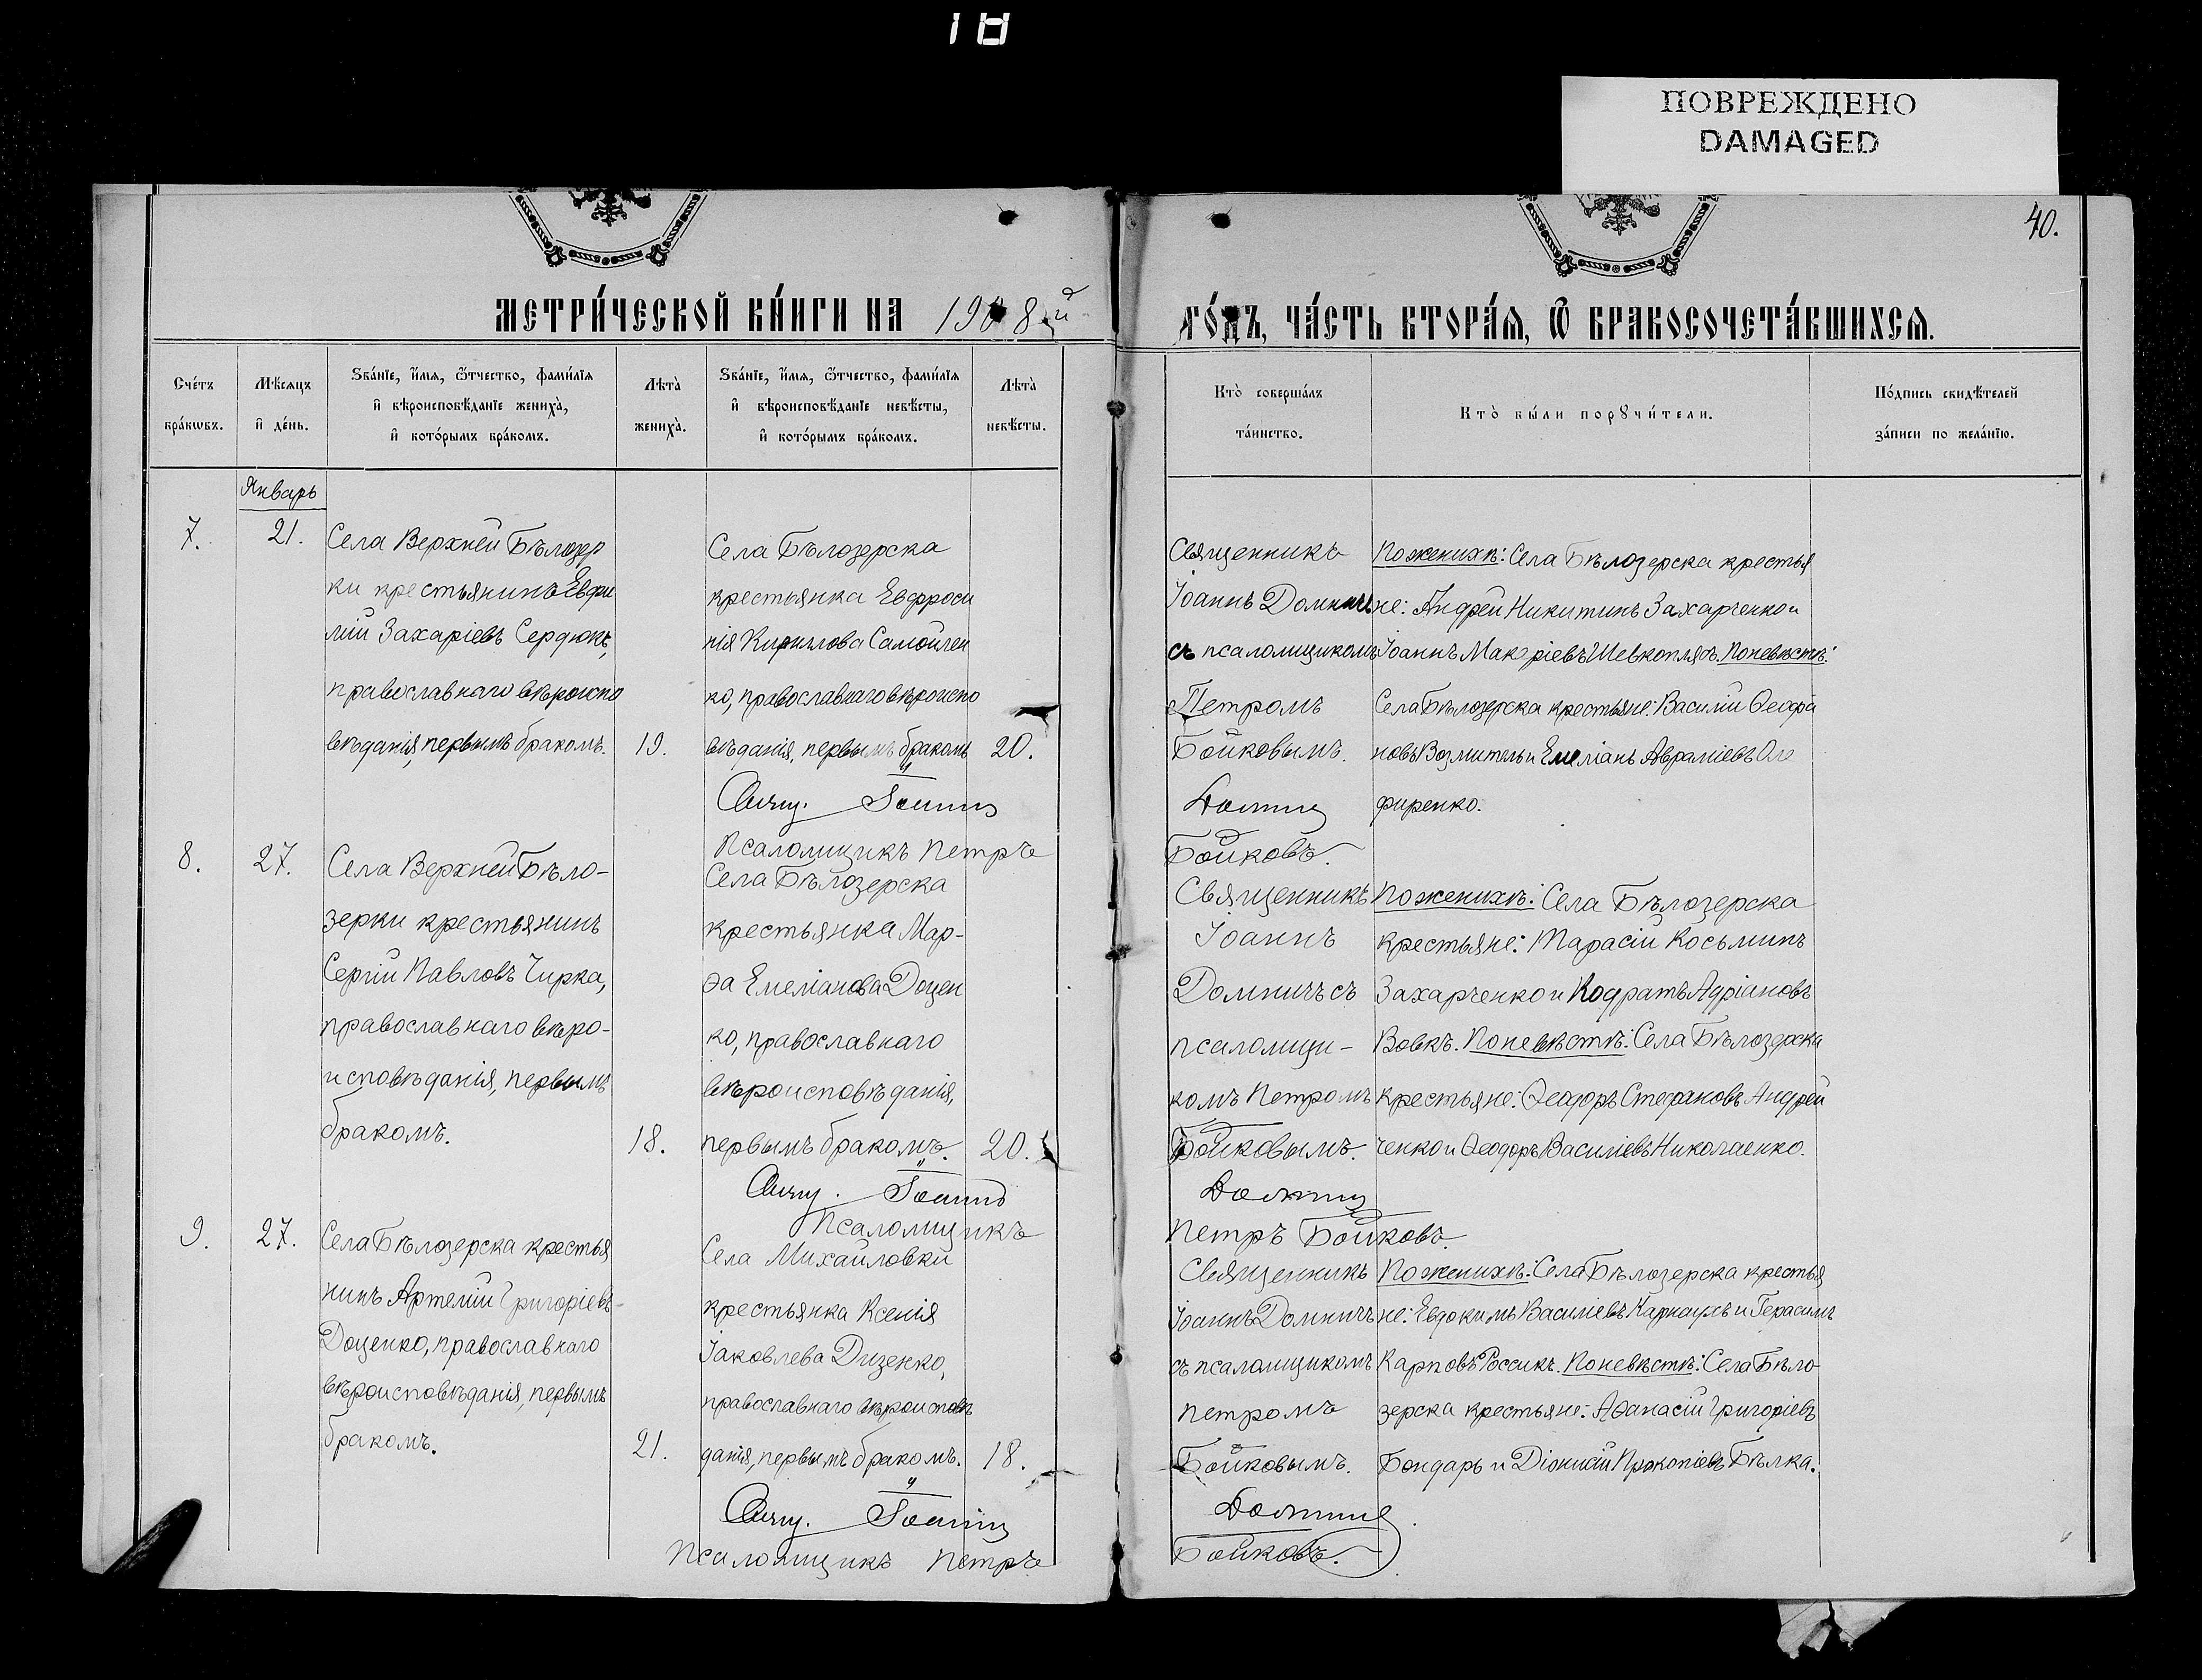 18
ПОВРЕЖДЕНО
DAMAGED
40.
МЕТРИ́ЧЕСКОЙ КНИ́ГИ НА 1908й
ГО́ДЪ, ЧА́СТЬ ВТОРА́Ѧ, Ѿ БРАКОСОЧЕТА́ВШИХСѦ.
Сче́тъ
бра́кѡвъ.
Мѣ́сяцъ
и҆ де́нь.
Ѕва́нїе, и҆́мѧ, ѻ҆́тчество, фами́лїѧ
и҆ вѣроисповѣ́данїе жениха̀,
и҆ кото́рымъ бра́комъ.
Лѣта̀
жениха̀.
Ѕва́нїе, и҆́мѧ, ѻ҆́тчество, фами́лїѧ
и҆ вѣроисповѣ́данїе невѣ́сты,
и҆ кото́рымъ бра́комъ.
Лѣта̀
невѣ́сты.
Кто̀ соверша́лъ
та́инство.
Кто̀ бы́ли порꙋчи́тели.
По́дпись свидѣ́телей
за́писи по жела́нїю.
Январь
7.
21.
Села Верхней Бѣлозер
ки крестьянинъ Евфи
мій Захаріевъ Сердюкъ,
православнаго вѣроиспо
вѣданія, первымъ бракомъ.
19.
Села Бѣлозерска
крестьянка Евфроси
нія Кириллова Самойлен
ко, православнаго вѣроиспо
вѣданія, первымъ бракомъ
20.
Священникъ
Іоаннъ Домничъ
съ псаломщикомъ
Петромъ
Бойковымъ.
По женихѣ: Села Бѣлозерска крестья
не: Андрей Никитинъ Захарченко и
Іоаннъ Макаріевъ Шевкоплясъ. По невѣстѣ:
Села Бѣлозерска крестьяне: Василій Ѳеофа
новъ Возмитль и Емеліанъ Авраміевъ Оле
фиренко.
Свящ. Іоаннъ Домничъ
Псаломщикъ Петръ Бойковъ.
8.
27.
Села Верхней Бѣло-
зерки крестьянинъ
Сергій Павловъ Чирка,
православнаго вѣро-
исповѣданія, первымъ
бракомъ.
18.
Села Бѣлозерска
крестьянка Мар-
ѳа Емеліанова Доцен
ко, православнаго
вѣроисповѣданія,
первымъ бракомъ.
20.
Священникъ
Іоаннъ
Домничъ съ
псаломщи-
комъ Петромъ
Бойковымъ.
По женихѣ: Села Бѣлозерска
крестьяне: Тарасій Косьминъ
Захарченко и Кодратъ Адріановъ
Вовкъ. По невѣстѣ: Села Бѣлозерска
крестьяне: Ѳеодоръ Стефановъ Андрей
ченко и Ѳеодоръ Василіевъ Николаенко.
Свящ. Іоаннъ Домничъ
Псаломщикъ Петръ Бойковъ.
9.
27.
Села Бѣлозерска крестья
нинъ Артемій Григоріевъ
Доценко, православнаго
вѣроисповѣданія, первымъ
бракомъ.
21.
Села Михайловки
крестьянка Ксенія
Іаковлева Дизенко,
православнаго вѣроисповѣ
данія, первымъ бракомъ.
18.
Священникъ
Іоаннъ Домничъ
съ псаломщикомъ
Петромъ
Бойковымъ.
По женихѣ: Села Бѣлозерска крестья
не: Евдокимъ Василіевъ Карнаухъ и Герасимъ
Карповъ Россикъ. По невѣстѣ: Села Бѣло
зерска крестьяне: Аѳанасій Григоріевъ
Бондарь и Діонисій Прокопіевъ Бѣлка.
Свящ. Іоаннъ Домничъ
Псаломщикъ Петръ Бойковъ.